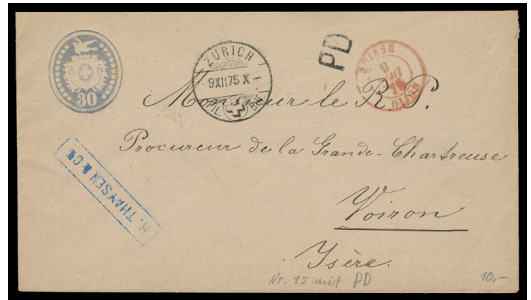 30
ZURICH
9XII75 X
FIL. BHF.
PD
SUISSE
DIJON
Monsieur le R. P.
Procureur de la Grande-Chartreuse
Voiron
Isère.
H. THAYSEN & Co
Nr. 15 mit PD
10,-